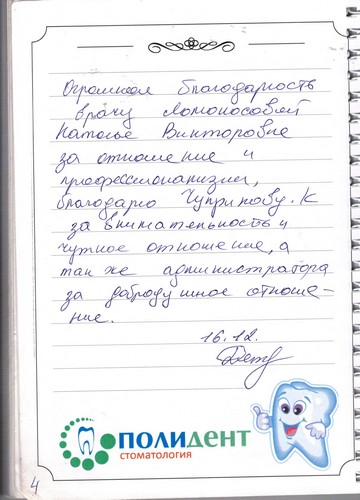 Огромная благодарность
врачу Ломоносовой
Наталье Викторовне
за отношение и
профессионализм,
благодарю Чупринову. К
за внимательность и
чуткое отношение, а
так же администратора
за добродушное отноше-
ние.
16.12.
ПОЛИДЕНТ
СТОМАТОЛОГИЯ
4